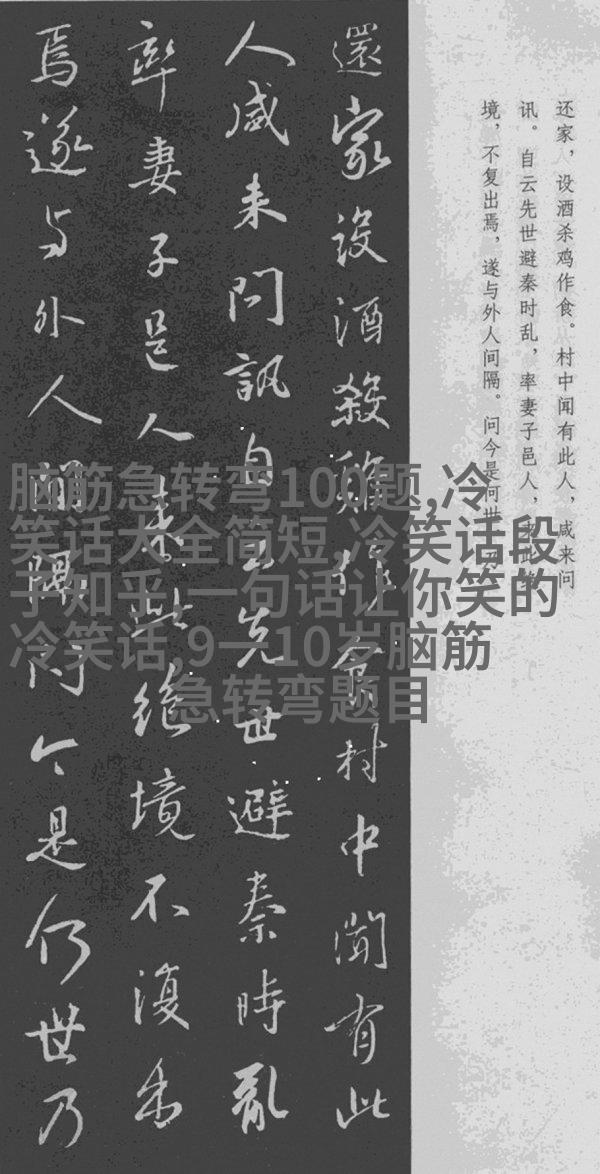 还家，设酒杀鸡作食。村中闻有此人，咸来问
讯。自云先世避秦时乱，率妻子邑人，来此绝
境，不复出焉，遂与外人间隔。问今是何世，乃
還家設酒殺雞作食村中聞有此
人咸来問訊自云先世避秦時亂
率妻子邑人来此絶境不復出
焉遂与外人間隔問今是何世乃
脑筋急转弯100题,冷
笑话大全简短,冷笑话段
子知乎,一句话让你笑的
冷笑话,9一10岁脑筋
急转弯题目